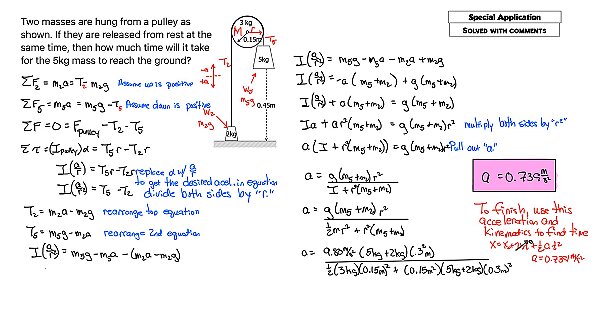 Two masses are hung from a pulley as
shown. If they are released from rest at the
same time, then how much time will it take
for the 5kg mass to reach the ground?
3 kg
M r
0.15m
T₅
5kg
T₂
+a
W₅
m₅g
0.45m
W₂
m₂g
2kg
ΣF₂ = m₂a = T₂ m₂g Assume up is positive
ΣF₅ = m₅a = m₅g - T₅ Assume down is positive
ΣF = 0 = Fpulley - T₂ - T₅
Στ = (Ipulley)α = T₅r - T₂r
I(a/r) = T₅r - T₂r replace α w/ a/r
to get the desired accel. in equation
I(a/r²) = T₅ - T₂ divide both sides by "r."
T₂ = m₂a - m₂g rearrange top equation
T₅ = m₅g - m₂a rearrange 2nd equation
I(a/r²) = m₅g - m₅a - (m₂a - m₂g)
Special Application
SOLVED WITH COMMENTS
I(a/r²) = m₅g - m₅a - m₂a + m₂g
I(a/r²) = -a(m₅+m₂) + g(m₅+m₂)
I(a/r²) + a(m₅+m₂) = g(m₅+m₂)
Ia + ar²(m₅+m₂) = g(m₅+m₂)r² multiply both sides by "r²"
a(I + r²(m₅+m₂)) = g(m₅+m₂)r² Pull out "a."
a = g(m₅+m₂)r² / I + r²(m₅+m₂)
a = g(m₅+m₂)r² / ½mr² + r²(m₅+m₂)
a = 9.80 m/s² (5kg+2kg)(.3m)² / ½(3kg)(0.15m)² + (0.15m²)(5kg+2kg)(0.3m)²
a = 0.739 m/s²
To finish, use this
acceleration and
kinematics to find time
a = 0.739 m/s²